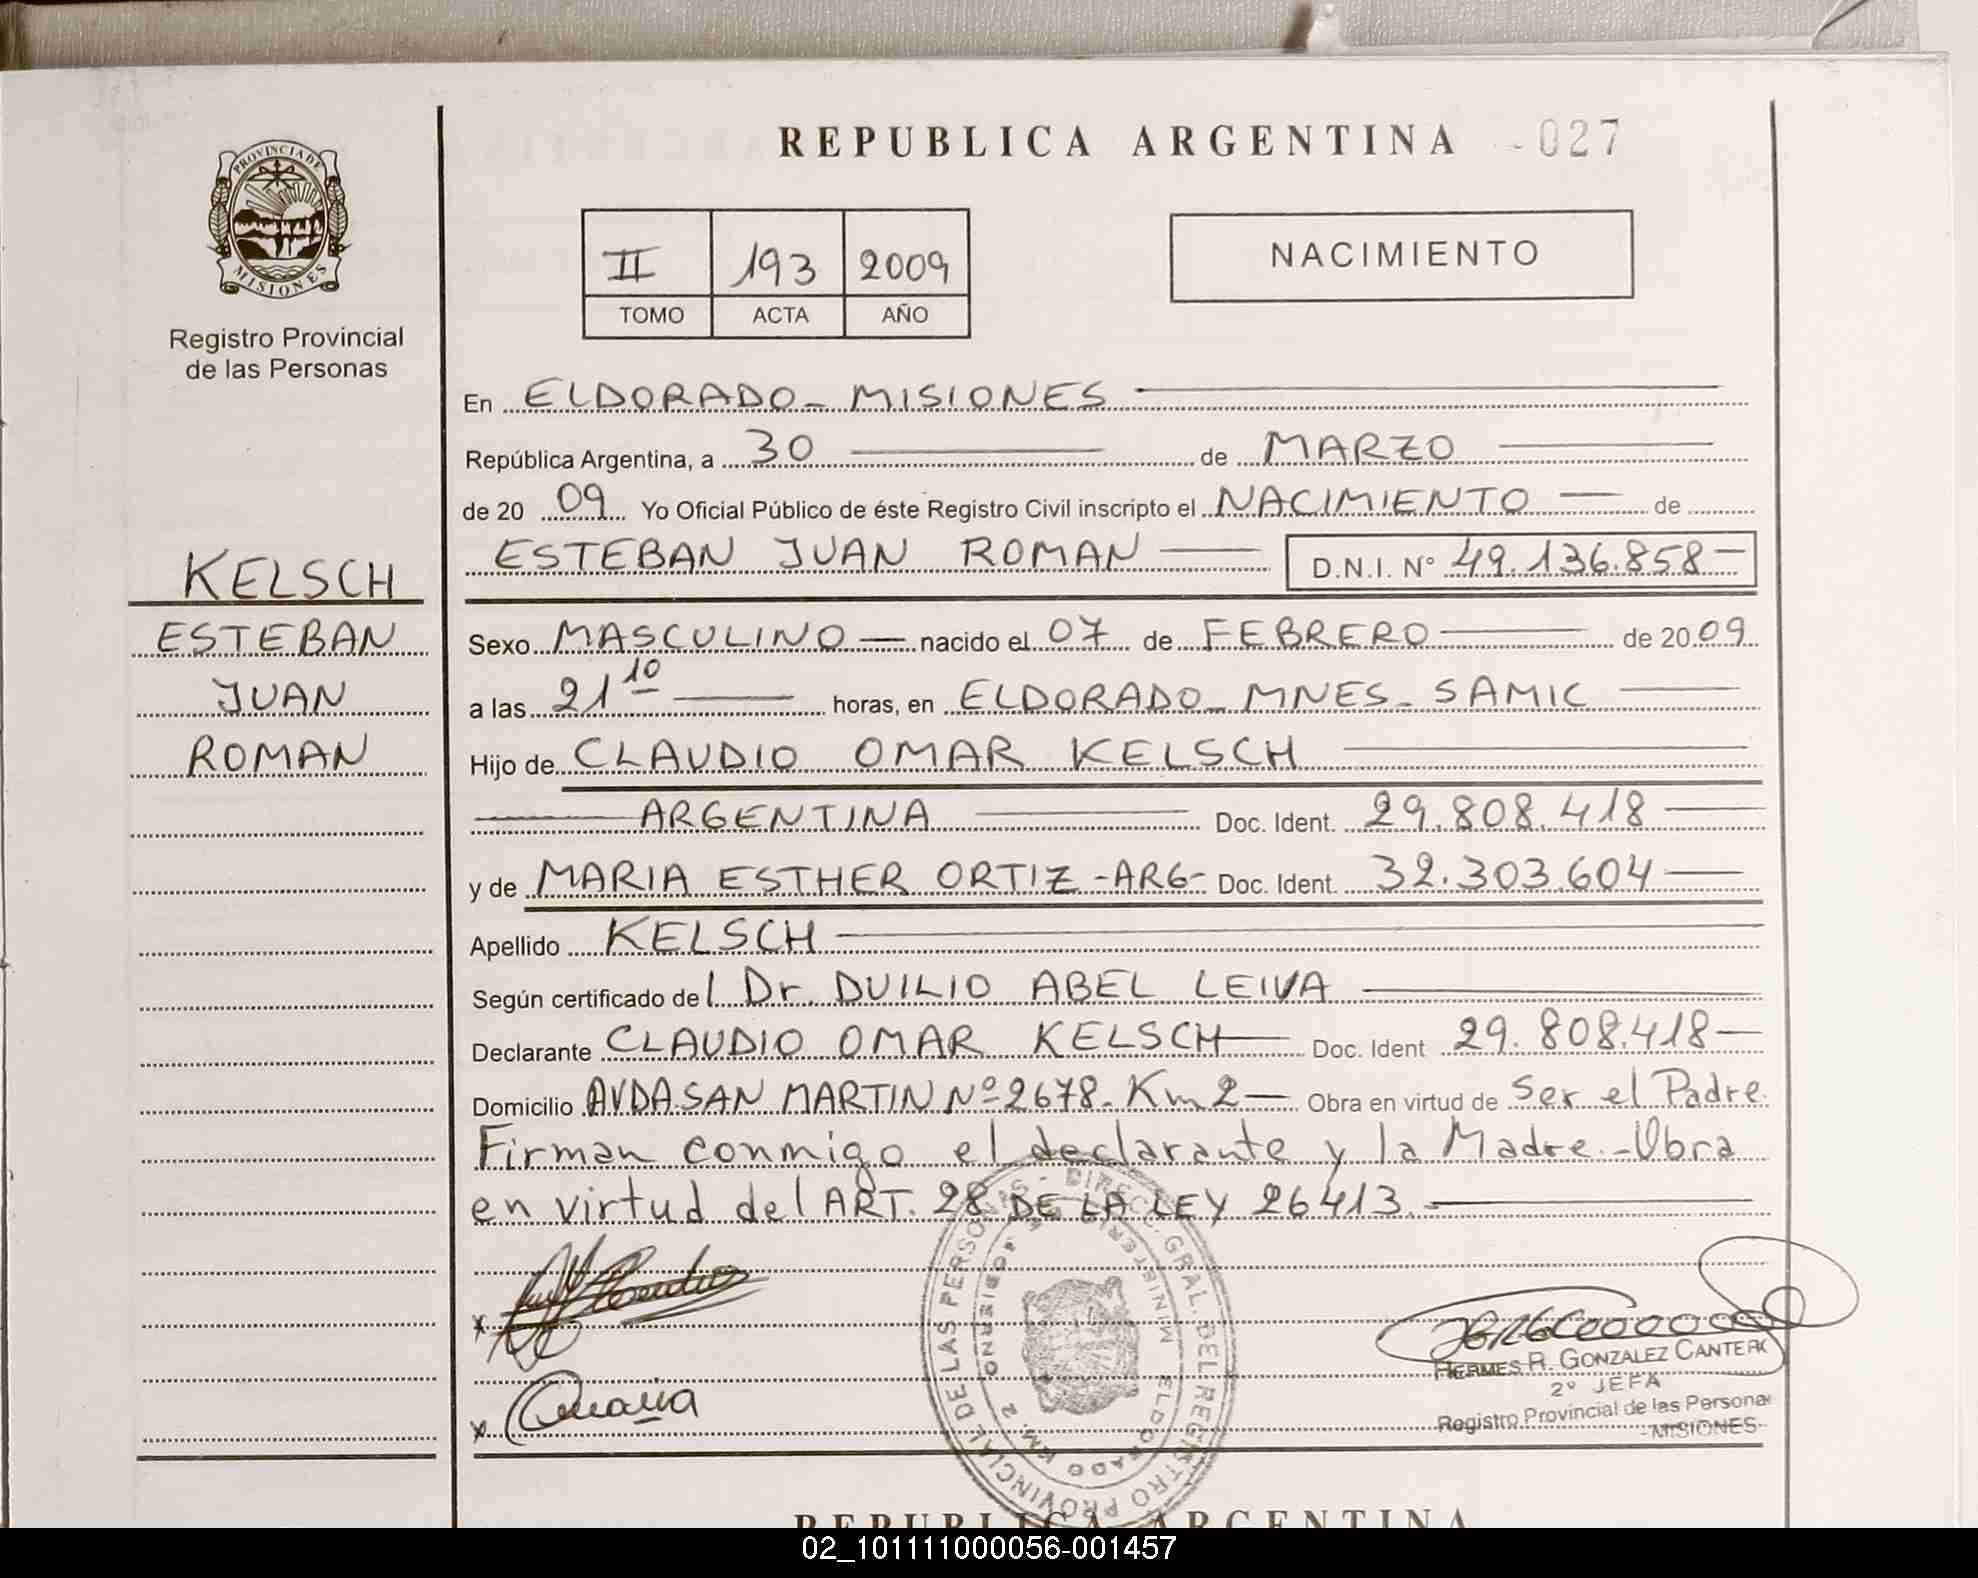 REPUBLICA ARGENTINA -027
PROVINCIA DE MISIONES
Registro Provincial
de las Personas
II 193 2009
TOMO ACTA AÑO
NACIMIENTO
En ELDORADO - MISIONES
República Argentina, a 30 de MARZO
de 20 09 Yo Oficial Público de éste Registro Civil inscripto el NACIMIENTO de
ESTEBAN JUAN ROMAN D.N.I. Nº 49.136.858
KELSCH
ESTEBAN
JUAN
ROMAN
Sexo MASCULINO nacido el 07 de FEBRERO de 20 09
a las 21 10 horas, en ELDORADO - MNES - SAMIC
Hijo de CLAUDIO OMAR KELSCH
ARGENTINA Doc. Ident. 29.808.418
y de MARIA ESTHER ORTIZ - ARG - Doc. Ident. 32.303.604
Apellido KELSCH
Según certificado de l Dr. DUILIO ABEL LEIVA
Declarante CLAUDIO OMAR KELSCH Doc. Ident 29.808.418
Domicilio AVDA. SAN MARTIN Nº 2678. Km 2 Obra en virtud de Ser el Padre.
Firman conmigo el declarante y la Madre.- Obra
en virtud del ART. 28 DE LA LEY 26413.
x Claudio
x Maria
DIREC. GRAL. DEL REGISTRO PROVINCIAL DE LAS PERSONAS -
MINISTERIO DE GOBIERNO
ELDORADO KM. 2
HERMES R. GONZALEZ CANTERO
2º JEFA
Registro Provincial de las Persona
-MISIONES-
REPUBLICA ARGENTINA
02_101111000056-001457